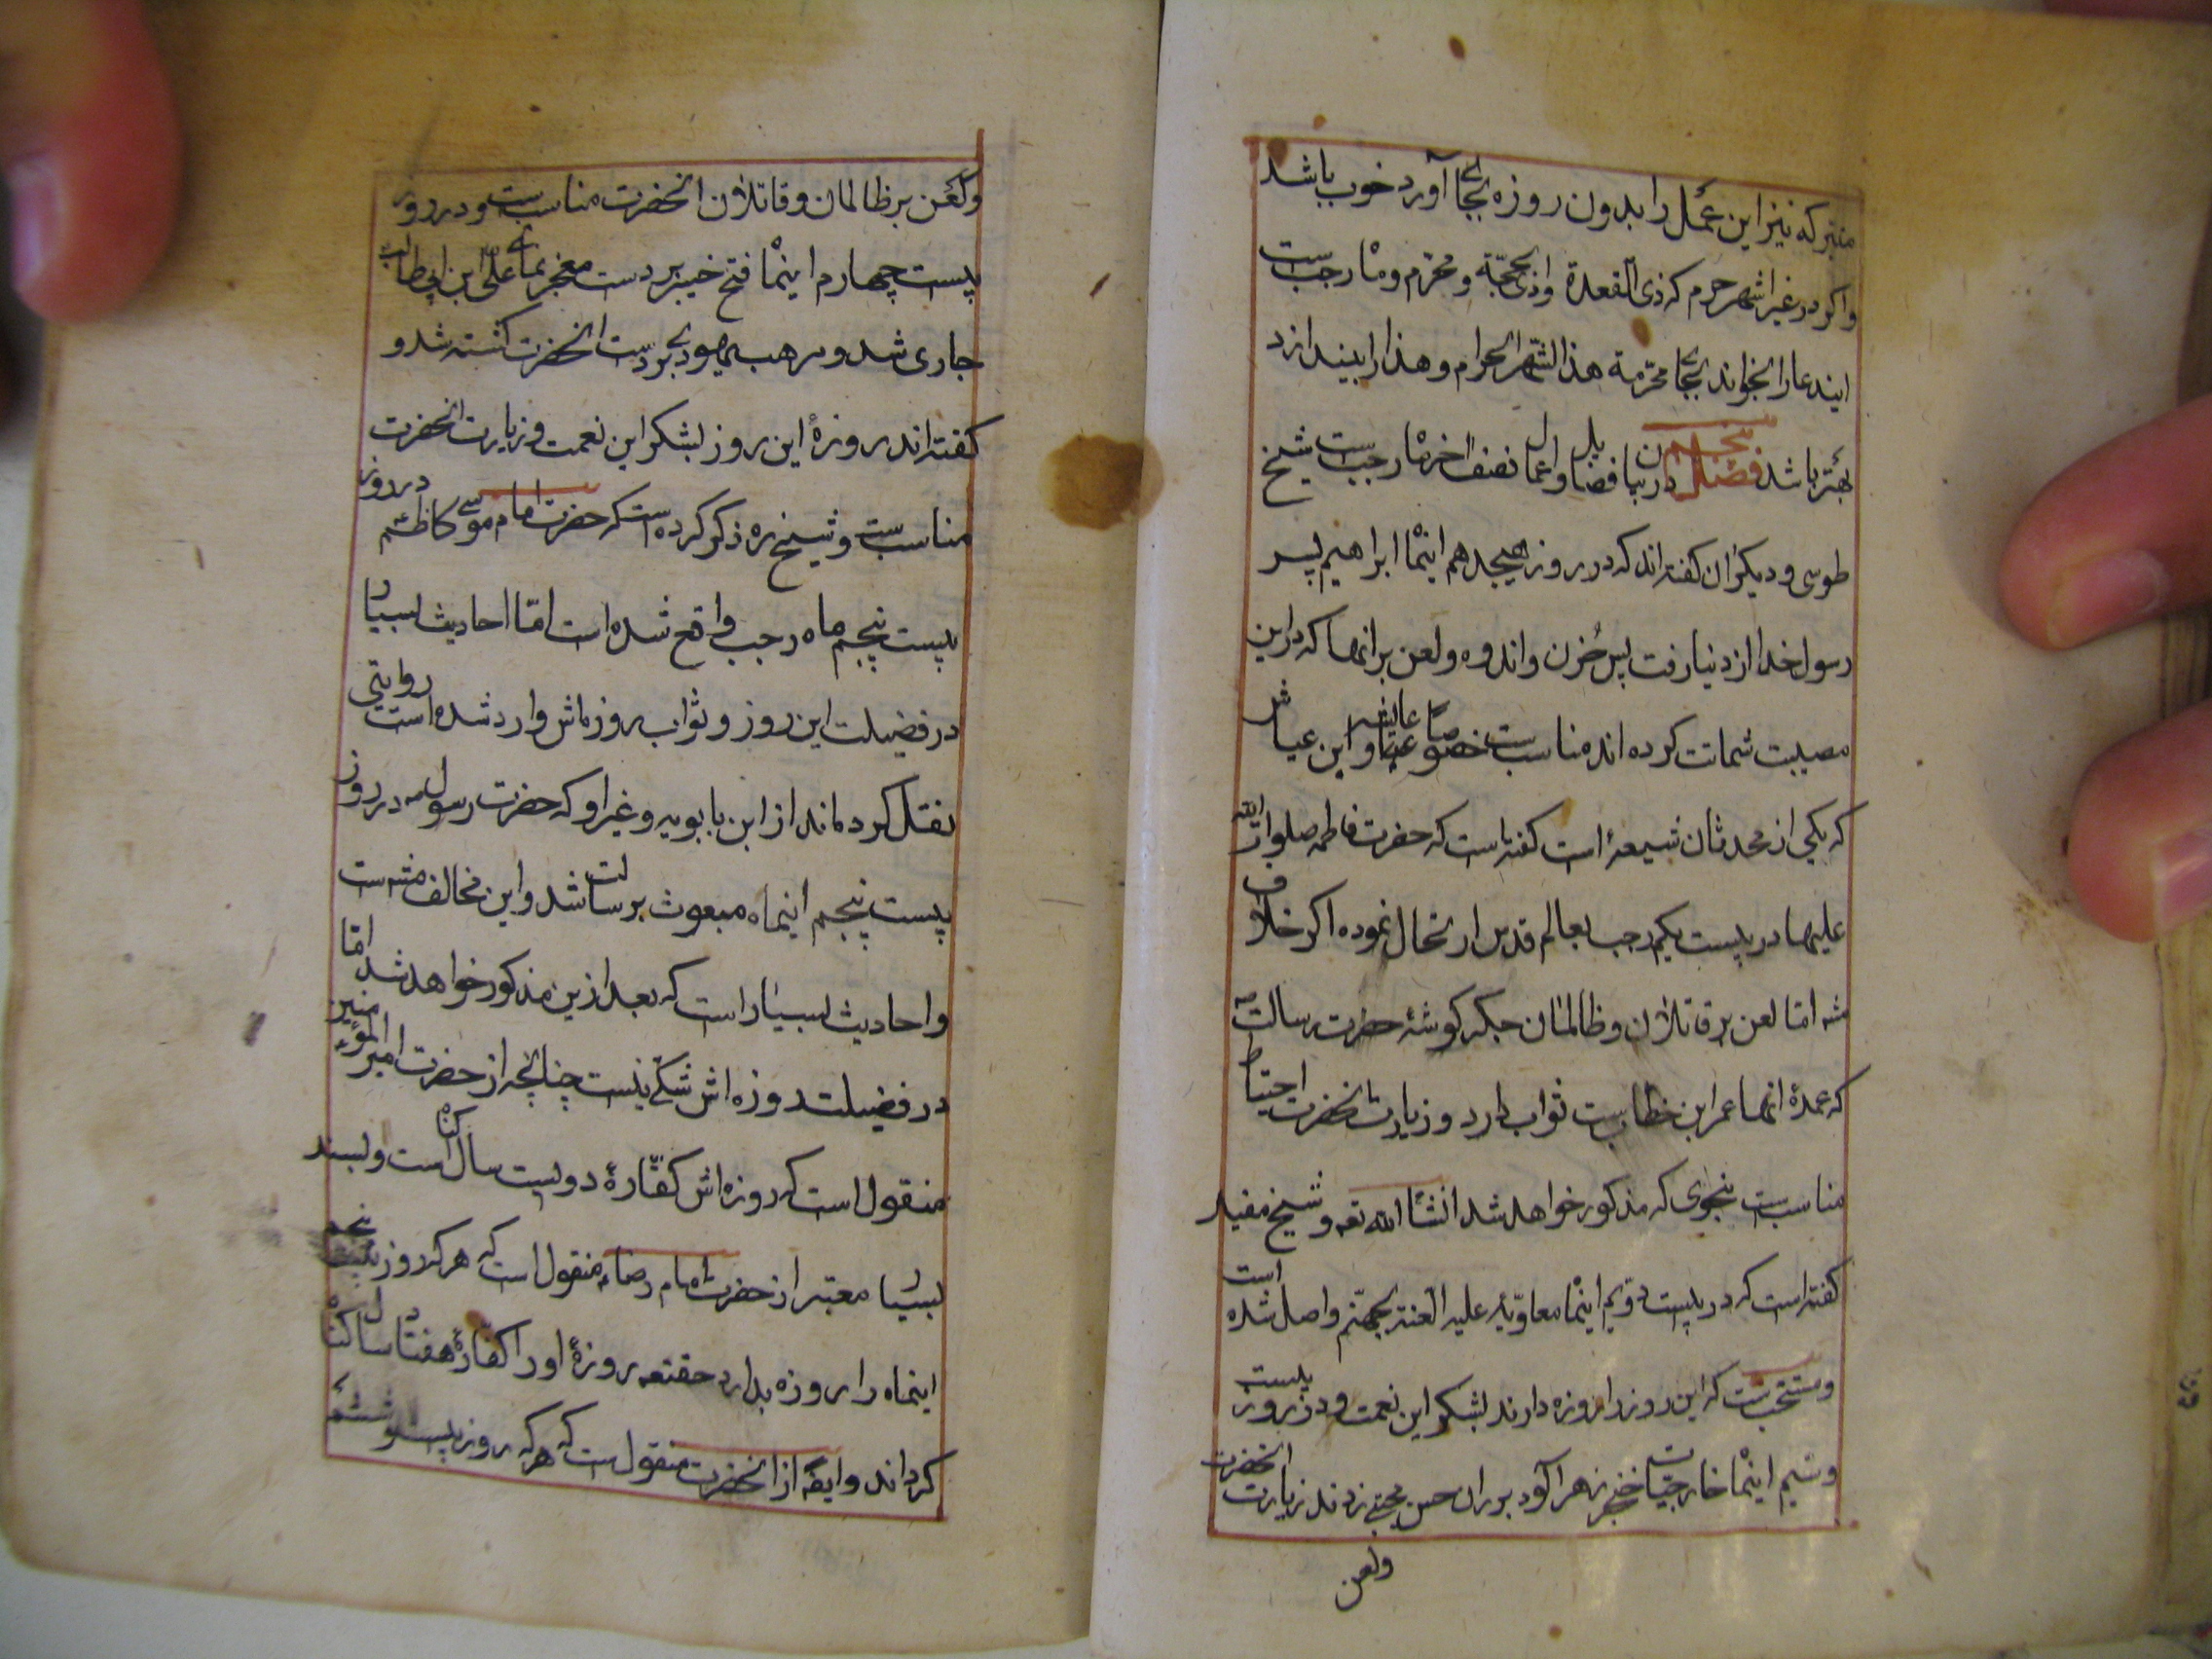 متبرکه نیز این عمل را بدون روزه بجای آورد خوب باشد
واکر در غیر اشهر حرم که ذی القعدة و ذی الحجّة و محرّم وماه رجبست
ایندعا را بخواند بجای محرّمة هذا الشّهر الحرام وهذا را بیندازد
بهتر باشد فصل پنجم در بیان فضایل واعمال نصف اخر ماه رجبست شیخ
طوسی ودیکران کفته‌اند که در روز هیجدهم اینماه ابراهیم پسر
رسول خدا از دنیا رفت پس حُزن واندوه ولعن بر انها که در این
مصیبت شماتت کرده اند مناسبست خصوصًا عایشه وابن عیاش
که یکی از محدثان شیعهٔ است کفته است که حضرت فاطمه صلوات الله
علیها در بیست یکم رجب بعالم قدس ارتحال نموده اکر خلاف
مشه اما لعن بر قاتلان وظالمان جکر کوشهٔ حضرت رسالت
که عمدهٔ انها عمر ابن خطابست ثواب دارد وزیارت انحضرت احتیاط
مناسبست بنحوی که مذکور خواهد شد انشاء الله تعه وشیخ مفید
کفته است که در بیست دویم اینماه معاویّه علیه العنة بجهنّم واصل شده است
ومستحبست که این روز را روزه دارند بشکر این نعمت ودر روز بیست
وسیم اینماه خارجیان خنجر زهر آلود بر ران حسن مجتبی زدند زیارت انحضرت
ولعن
ولَعن بر ظالمان وقاتلان انحضرت مناسبست ودر روز
بیست چهارم اینماه فتح خیبر بر دست معجز نمای علی ابن ابی طالب
جاری شد ومرهب یهودی بر دست انحضرت کشته شد و
کفته اند روزهٔ این روز بشکر این نعمت وزیارت انحضرت
مناسبست وشیخ ره ذکر کرده‌ست که حضرت امام موسی کاظم در روز
بیست پنجم ماه رجب واقع شده است امّا احادیث بسیار
در فضیلت این روز وثواب روزه‌اش وارد شده است روایتی
نقل کرده‌اند از ابن بابویه وغیر او که حضرت رسول در روز
بیست پنجم اینماه مبعوث برسالت شد واین مخالف مشه ست
واحادیث بسیار است که بعد ازین مذکور خواهد شد امّا
در فضیلت روزه اش شکّی نیست چنانچه از حضرت امیر المؤمنین
منقول است که روزه‌اش کفّارهٔ دویست سال کناه است وبسند
بسیار معتبر از حضرت امام رضا منقول است که هر که روز بیست پنجم
اینماه را روزه بدارد حقتعه روزهٔ او را کفّارهٔ هفتاد سال کناه
کرداند وایضًا از انحضرت منقولست که هر که روز بیست وششم